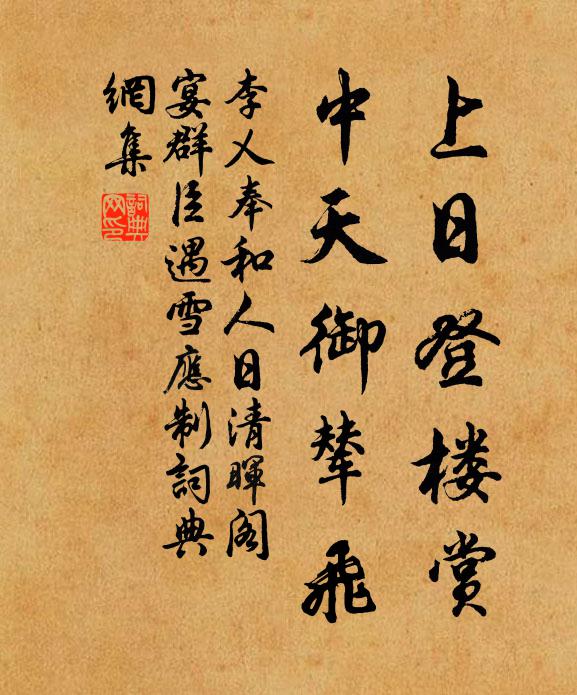 上日登楼赏
中天御辇飞
李乂奉和人日清暉阁
宴群臣遇雪應制詞典
網集
詞典
网印